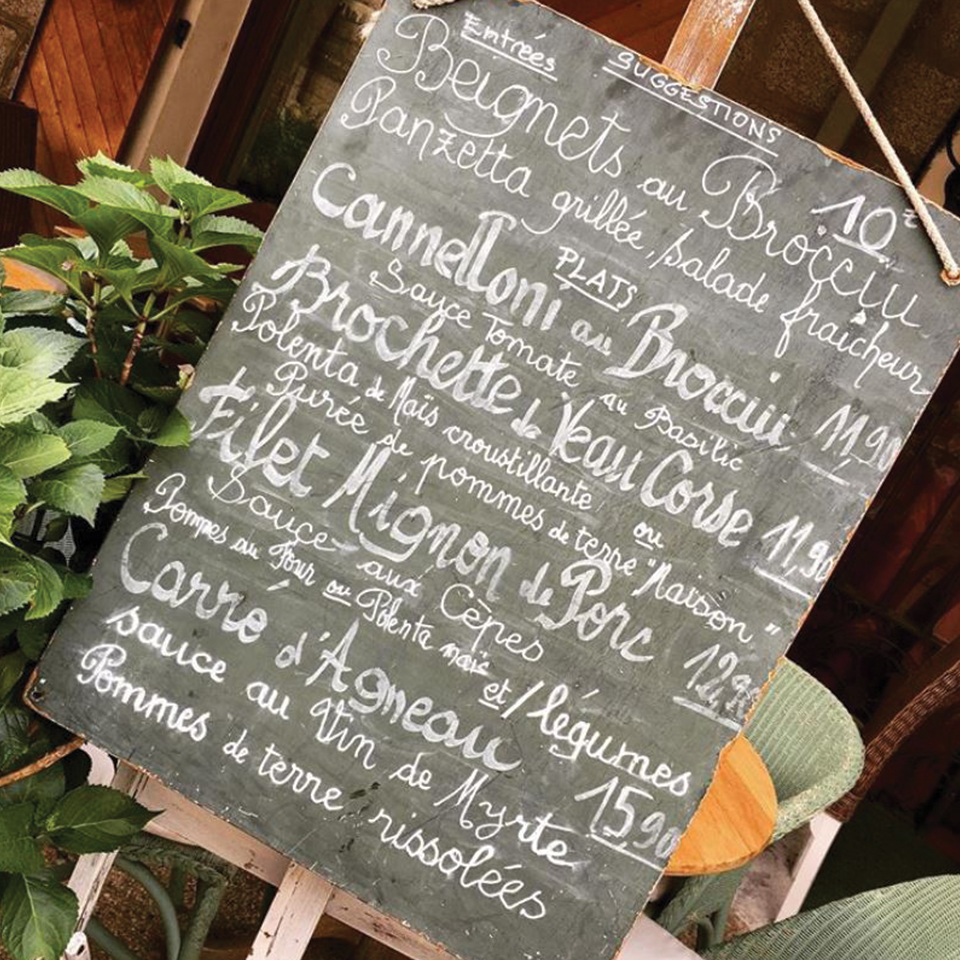 Entrées SUGGESTIONS
Beignets au Brocciu 10€
Panzetta grillée, salade fraicheur
PLATS
Cannelloni au Brocciu 11,90
Sauce Tomate au Basilic
Brochette de Veau Corse 11,90
Polenta de Maïs croustillante ou
Purée de pommes de terre "Maison"
Filet Mignon de Porc 12,90
Sauce aux Cèpes
Pommes au Four ou Polenta maïs et/légumes
Carré d'Agneau 15,90
sauce au Vin de Myrte
Pommes de terre rissolées